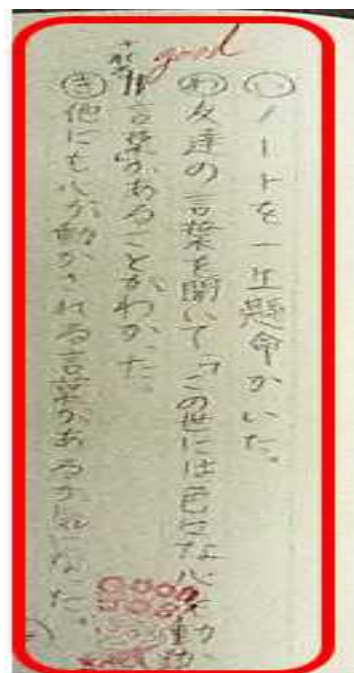 good
㋑ノートを一生懸命かいた。
㋻友達の言葉を聞いて「この世には色々な心を動か
す言葉があることがわかった。
㋖他にも心が動かされる言葉があるか気になった。
GOOD